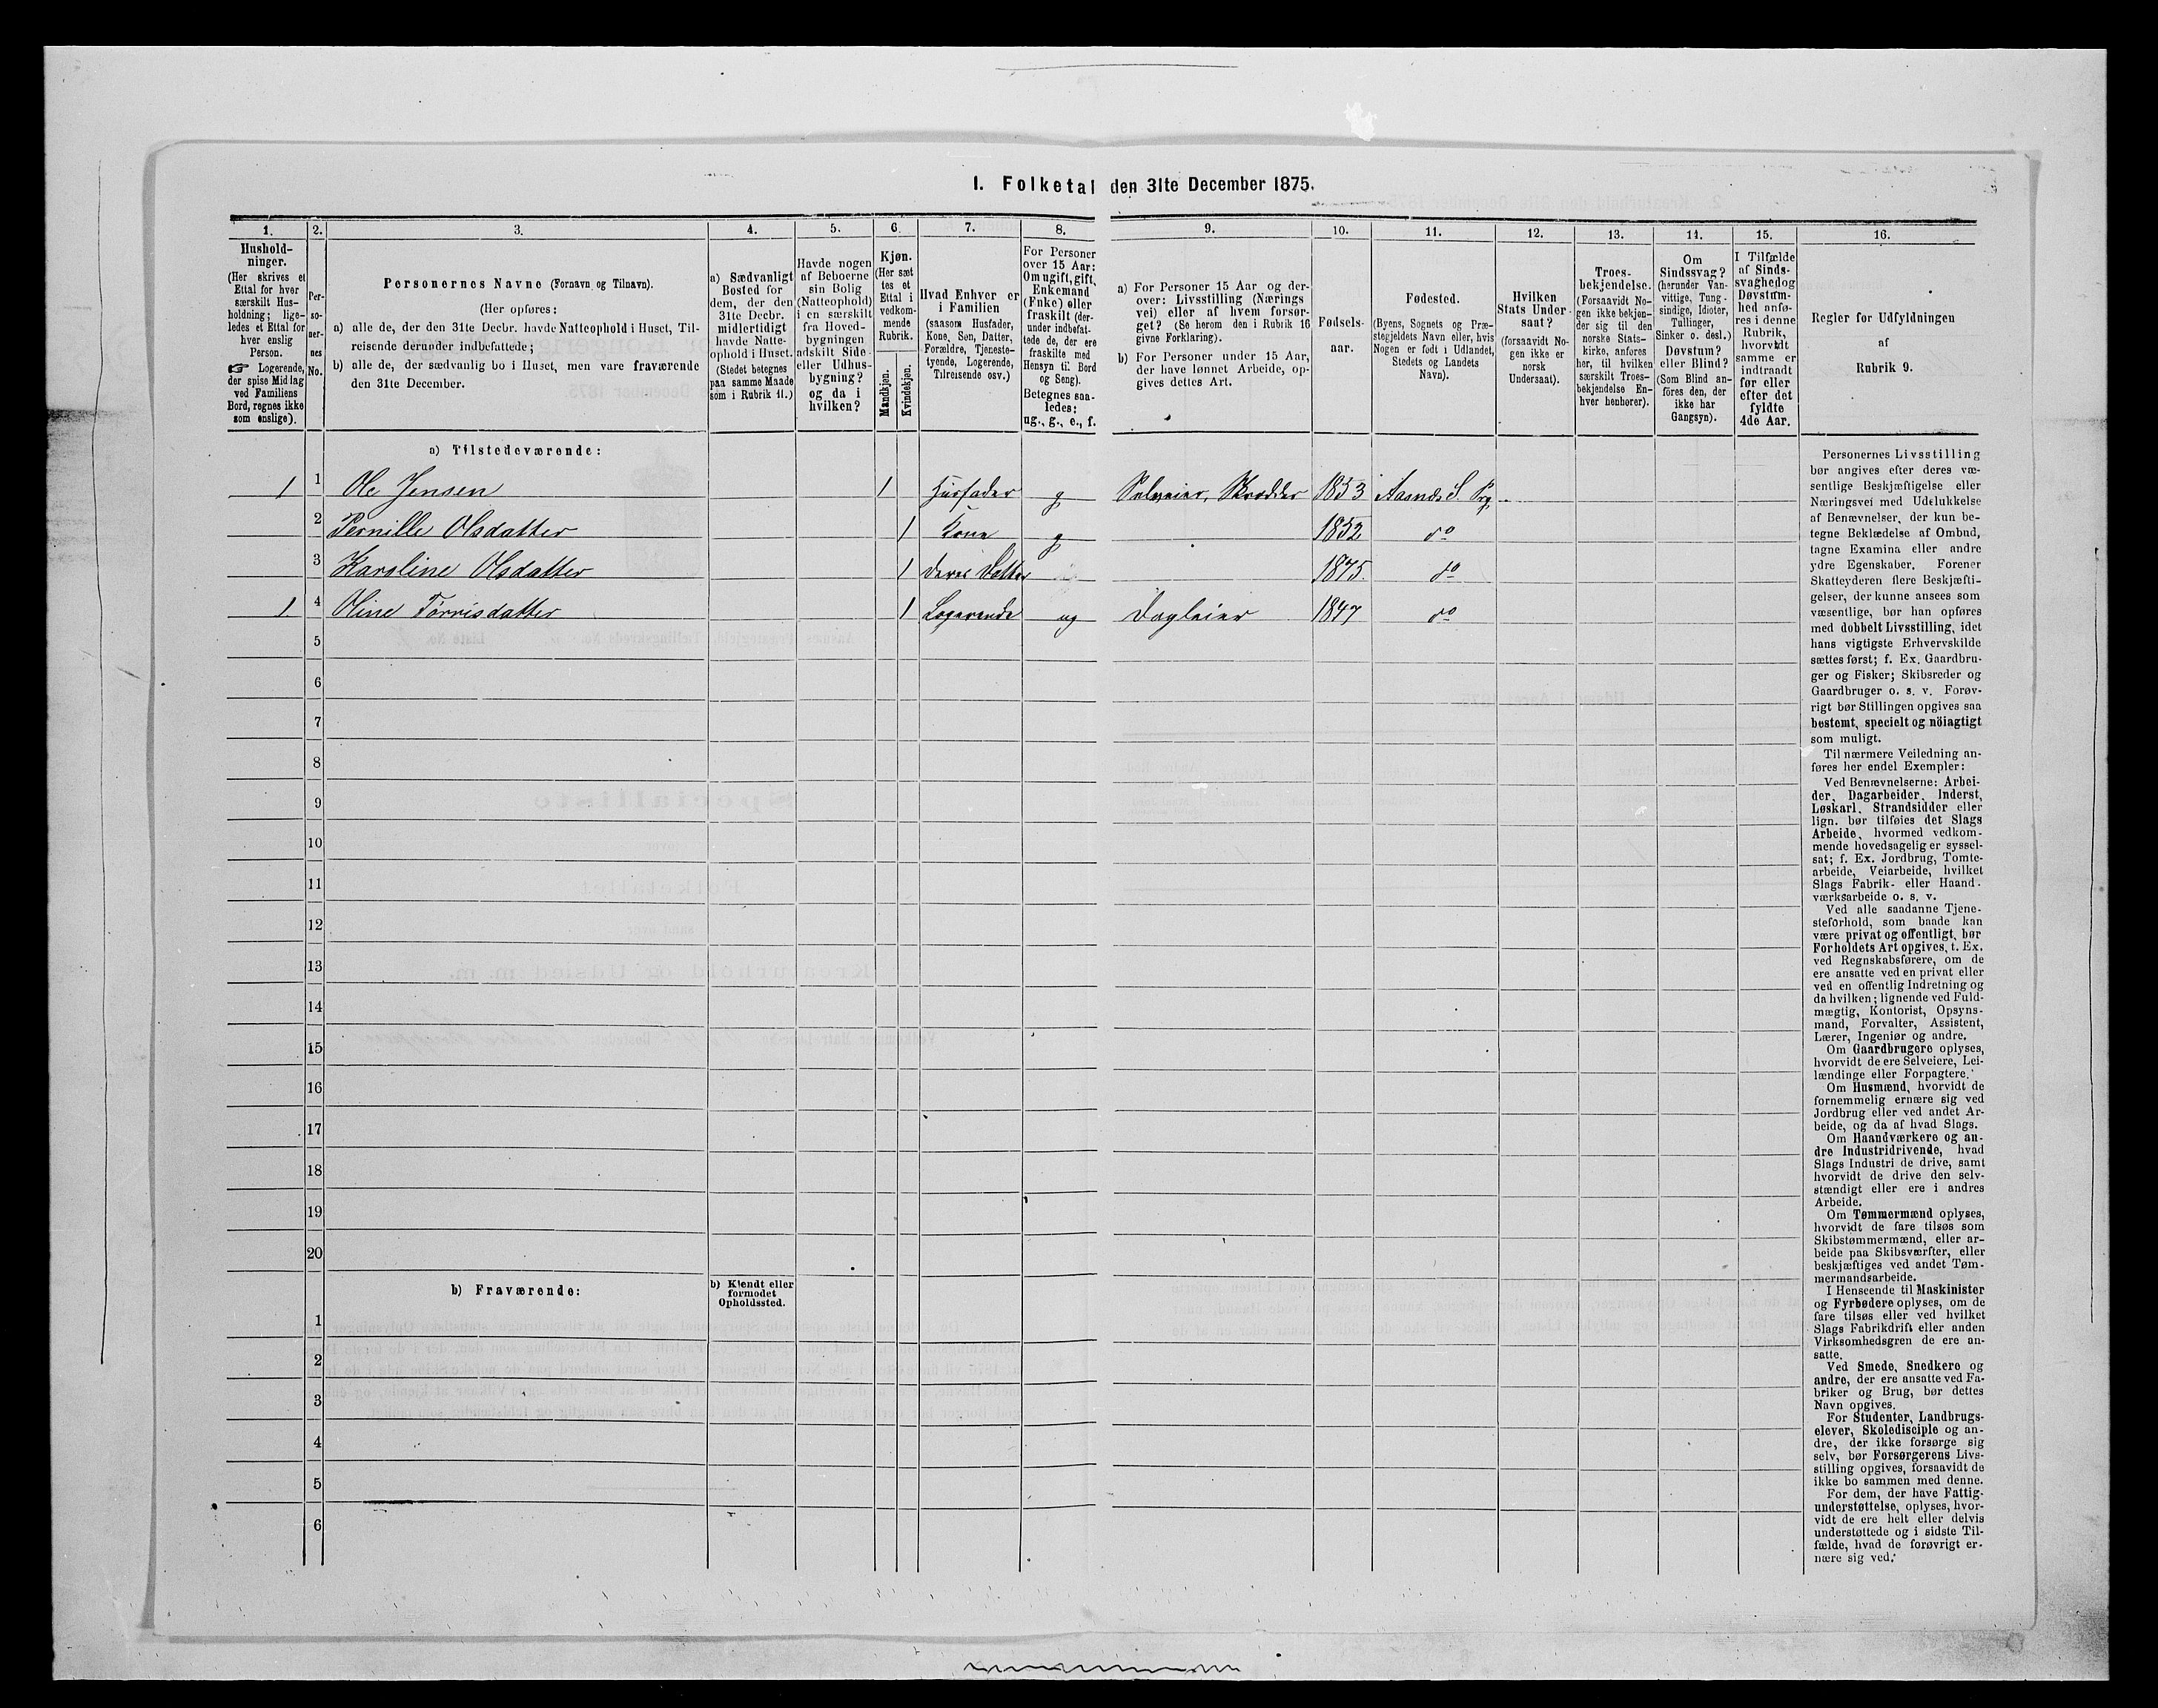 1. Folketal den 31te December 1875.
1. 2. 3. 4. 5. 6. 7. 8. 9. 10. 11. 12. 13. 14. 15. 16.
Hushold-
ninger.
(Her skrives et
Ettal for hver
særskilt Hus-
holdning; lige-
ledes et Ettal for
hver enslig
Person.
☞ Logerende,
der spise Middag
ved Familiens
Bord, regnes ikke
som enslige).
Per-
so-
ner-
nes
No.
Personernes Navne (Fornavn og Tilnavn).
(Her opføres:
a) alle de, der den 31te Decbr. havde Natteophold i Huset, Til-
reisende derunder indbefattede;
b) alle de, der sædvanlig bo i Huset, men vare fraværende
den 31te December.
a) Sædvanligt
Bosted for
dem, der den
31te Decbr.
midlertidigt
havde Natte-
ophold i Huset.
(Stedet betegnes
paa samme Maade
som i Rubrik 11.)
Havde nogen
af Beboerne
sin Bolig
(Natteophold)
i en særskilt
fra Hoved-
bygningen
adskilt Side-
eller Udhus-
bygning?
og da i
hvilken?
Kjøn.
(Her sæt-
tes et
Ettal i
vedkom-
mende
Rubrik.
Mandkjøn.
Kvindekjøn.
Hvad Enhver er
i Familien
(saasom Husfader,
Kone, Søn, Datter,
Forældre, Tjeneste-
tyende, Logerende,
Tilreisende osv.)
For Personer
over 15 Aar:
Om ugift, gift,
Enkemand
(Enke) eller
fraskilt (der-
under indbefat-
tede de, der ere
fraskilte med
Hensyn til Bord
og Seng).
Betegnes saa-
ledes:
ug., g., e., f.
a) For Personer 15 Aar og der-
over: Livsstilling (Nærings
vei) eller af hvem forsør-
get? (Se herom den i Rubrik 16
givne Forklaring).
b) For Personer under 15 Aar,
der have lønnet Arbeide, op-
gives dettes Art.
Fødsels-
aar.
Fødested.
(Byens, Sognets og Præ-
stegjeldets Navn eller, hvis
Nogen er født i Udlandet,
Stedets og Landets
Navn).
Hvilken
Stats Under
saat?
(forsaavidt No-
gen ikke er
norsk
Undersaat).
Troes-
bekjendelse.
(Forsaavidt No-
gen ikke bekjen-
der sig til den
norske Stats-
kirke, anføres
her, til hvilken
særskilt Troes-
bekjendelse En-
hver henhører).
Om
Sindssvag?
(herunder Van-
vittige, Tung-
sindige, Idioter,
Tullinger,
Sinker o. desl.)
Døvstum?
eller Blind?
(Som Blind an-
føres den, der
ikke har
Gangsyn).
I Tilfælde
af Sinds-
svaghed og
Døvstum-
hed anfø-
res i denne
Rubrik,
hvorvidt
samme er
indtraadt
før eller
efter det
fyldte
4de Aar.
Regler for Udfyldningen
af
Rubrik 9.
a) Tilstedeværende:
1 1 Ole Jensen 1 Husfader g Selveier, Skrædder 1853 Aasnæs S. Prg.
2 Pernille Olsdatter 1 Kone g 1852 do
3 Karoline Olsdatter 1 deres Datter 1875. do
1 4 Oline Tørrisdatter 1 Logerende ug Dagleier 1847 do
5
6
7
8
9
10
11
12
13
14
15
16
17
18
19
20
b) Fraværende:
b) Kjendt eller
formodet
Opholdssted.
1
2
3
4
5
6
Personernes Livsstilling
bør angives efter deres væ-
sentlige Beskjæftigelse eller
Næringsvei med Udelukkelse
af Benævnelser, der kun be-
tegne Beklædelse af Ombud,
tagne Examina eller andre
ydre Egenskaber. Forener
Skatteyderen flere Beskjæfti-
gelser, der kunne ansees som
væsentlige, bør han opføres
med dobbelt Livsstilling, idet
hans vigtigste Erhvervskilde
sættes først; f. Ex. Gaardbru-
ger og Fisker; Skibsreder og
Gaardbruger o. s. v. Forøv-
rigt bør Stillingen opgives saa
bestemt, specielt og nöiagtigt
som muligt.
Til nærmere Veiledning an-
føres her endel Exempler:
Ved Benævnelserne: Arbei-
der, Dagarbeider, Inderst,
Løskarl, Strandsidder eller
lign. bør tilføies det Slags
Arbeide, hvormed vedkom-
mende hovedsagelig er syssel-
sat; f. Ex. Jordbrug, Tomte-
arbeide, Veiarbeide, hvilket
Slags Fabrik- eller Haand-
værksarbeide o. s. v.
Ved alle saadanne Tjene-
steforhold, som baade kan
være privat og offentligt, bør
Forholdets Art opgives, t. Ex.
ved Regnskabsførere, om de
ere ansatte ved en privat eller
ved en offentlig Indretning og
da hvilken; lignende ved Fuld-
mægtig, Kontorist, Opsyns-
mand, Forvalter, Assistent,
Lærer, Ingeniør og andre.
Om Gaardbrugere oplyses,
hvorvidt de ere Selveiere, Lei-
lændinge eller Forpagtere.
Om Husmænd, hvorvidt de
fornemmelig ernære sig ved
Jordbrug eller ved andet Ar-
beide, og da af hvad Slags.
Om Haandværkere og an-
dre Industridrivende, hvad
Slags Industri de drive, samt
hvorvidt de drive den selv-
stændigt eller ere i andres
Arbeide.
Om Tømmermænd oplyses,
hvorvidt de fare tilsøs som
Skibstømmermænd, eller ar-
beide paa Skibsværfter, eller
beskjæftiges ved andet Tøm-
mermandsarbeide.
I Henseende til Maskinister
og Fyrbødere oplyses, om de
fare tilsøs eller ved hvilket
Slags Fabrikdrift eller anden
Virksomhedsgren de ere an-
satte.
Ved Smede, Snedkere og
andre, der ere ansatte ved Fa-
briker og Brug, bør dettes
Navn opgives.
For Studenter, Landbrugs-
elever, Skoledisciple og an-
dre, der ikke forsørge sig
selv, bør Forsørgerens Livs-
stilling opgives, forsaavidt de
ikke bo sammen med denne.
For dem, der have Fattig-
understøttelse, oplyses, hvor-
vidt de ere helt eller delvis
understøttede og i sidste Til-
fælde, hvad de forøvrigt er-
nære sig ved.